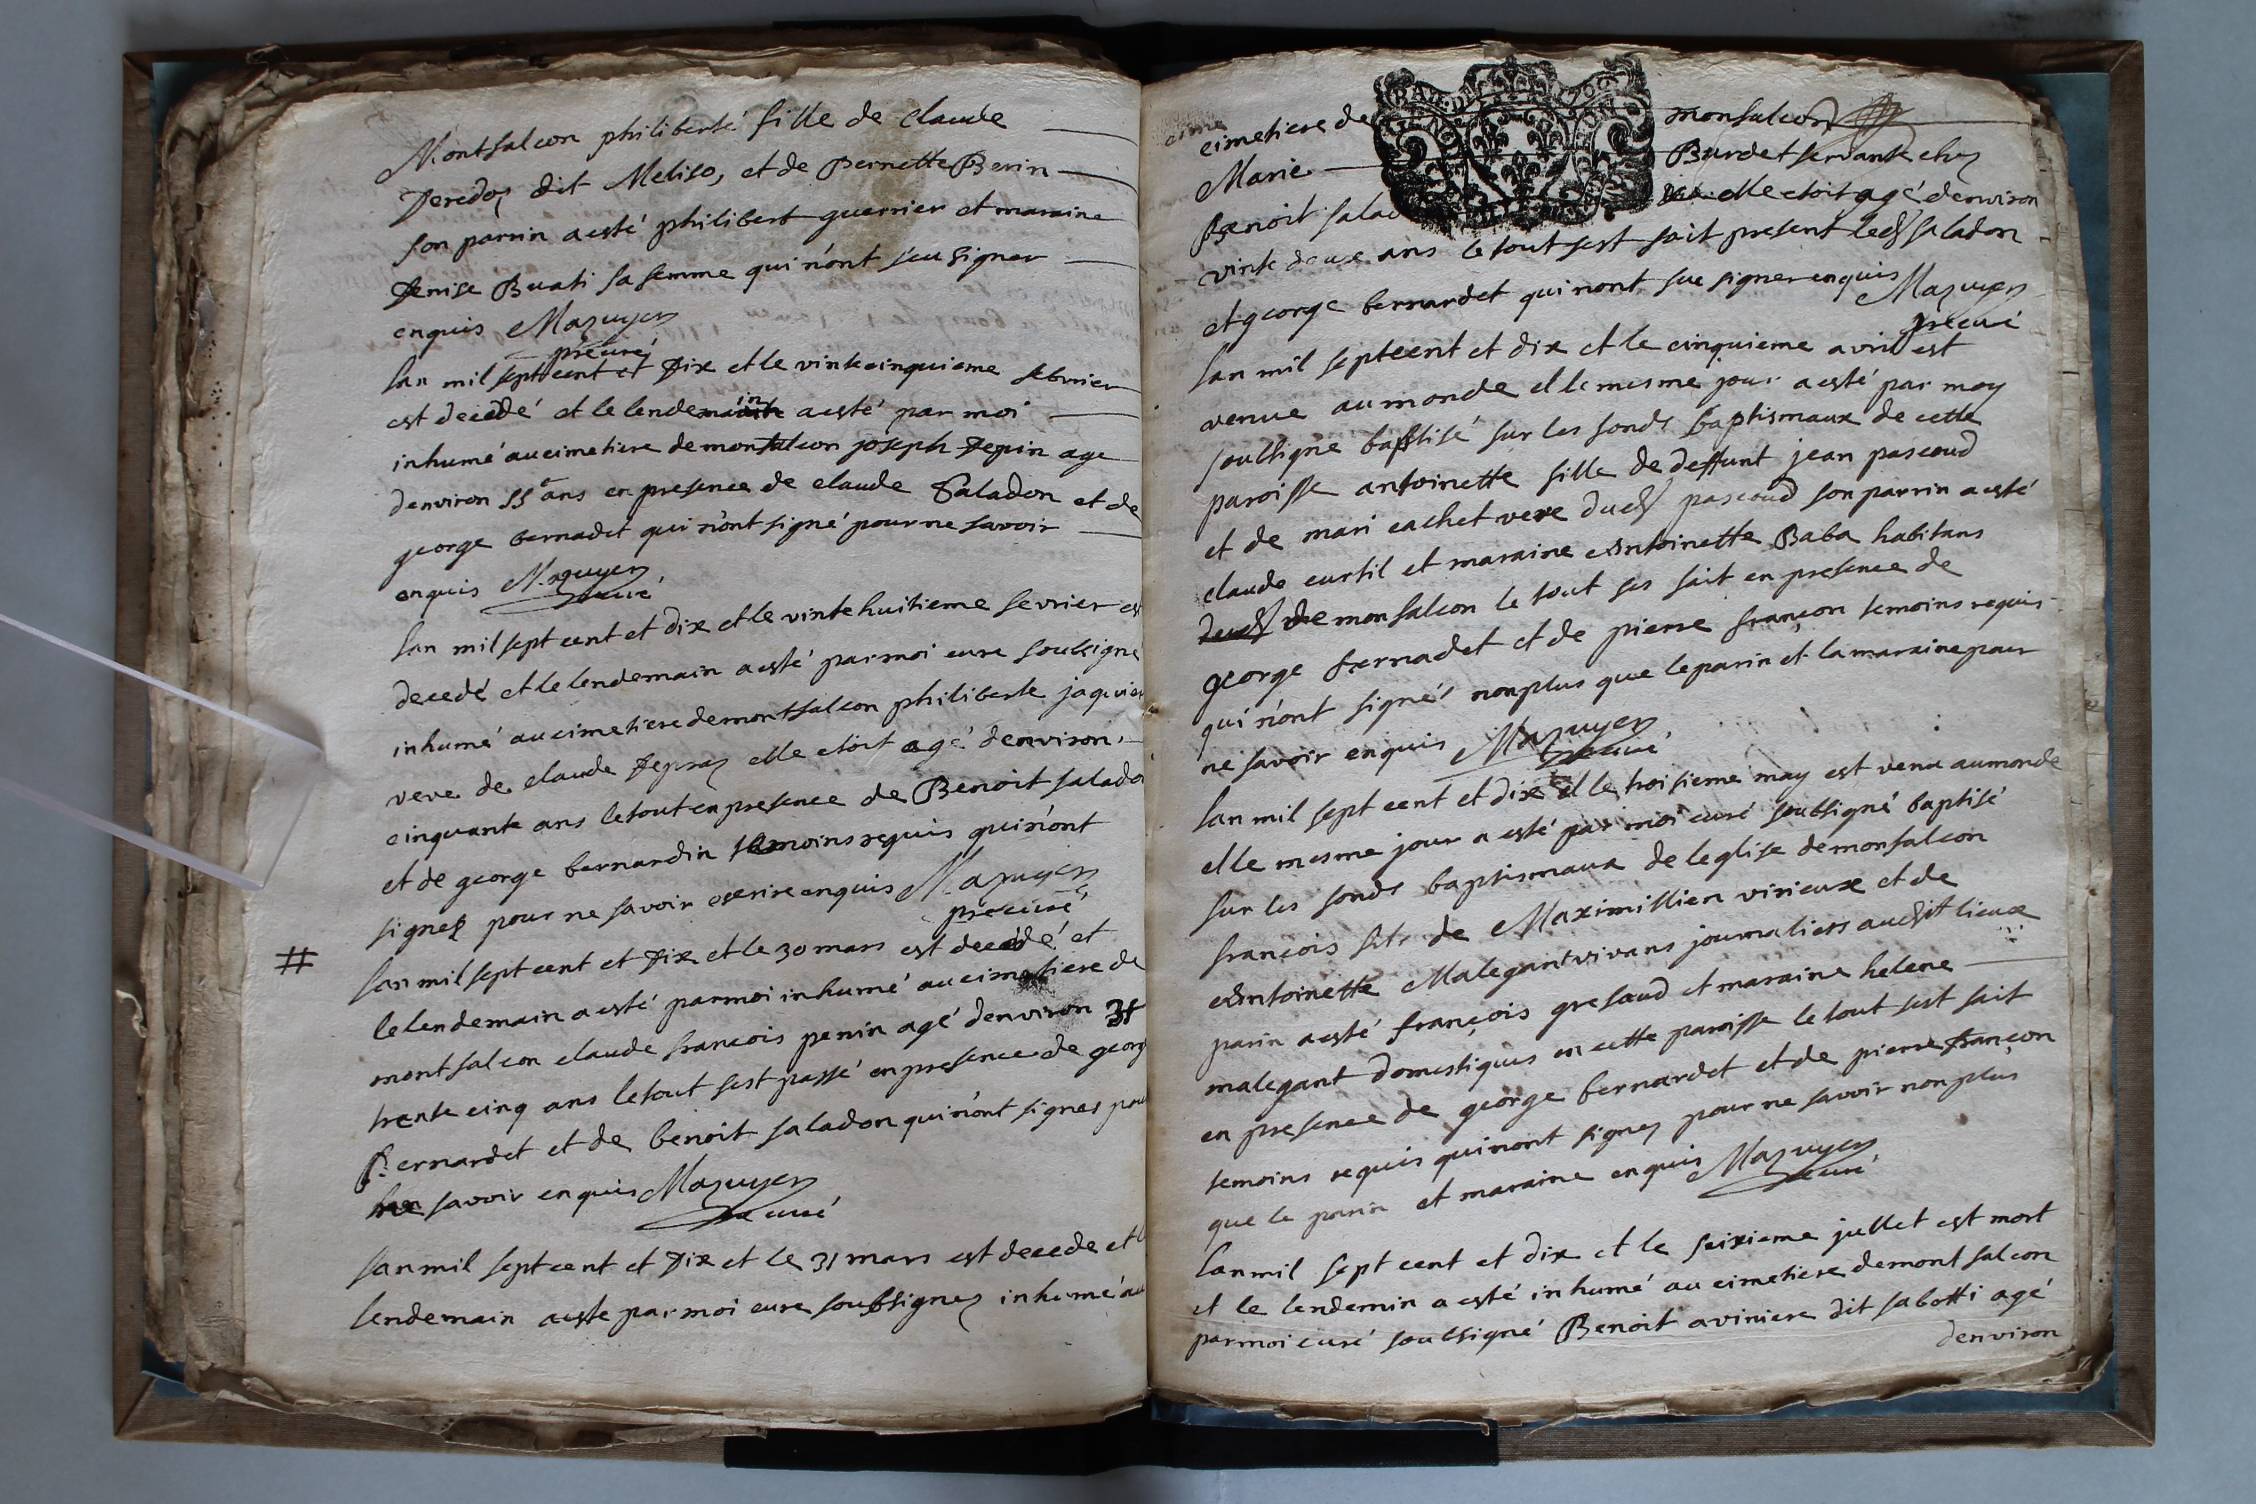 Montfalcon philiberté fille de Claude
Deredos dit Meliso, et de Bernette Berin
son parrin a esté philibert guerrier et maraine
Denise Buati sa femme qui n'ont sceu signer
enquis Mazuyer
precuré
Lan mil sept cent et Dix et le vinte cinquieme febvrier
est decedé et le lendemain a esté par moi
inhumé au cimetiere de montfalcon joseph Depin age
denviron 55 ans en presence de claude Saladon et de
george bernadet qui n'ont signé pour ne savoir
enquis Mazuyer
precuré
Lan mil sept cent et dix et le vinte huitieme fevrier est
decedé et le lendemain a esté par moi cure soubsigne
inhumé au cimetiere de montfalcon philiberte jaquier
veve de claude Depraz elle etoit agé denviron
cinquante ans le tout en presence de Benoit salado
et de george bernardin temoins requis qui n'ont
signez pour ne savoir escrire enquis Mazuyer
precuré
# Lan mil sept cent et Dix et le 30 mars est decedé et
le lendemain a esté par moi inhumé au cimetiere de
montfalcon claude françois perin agé denviron 35
trente cinq ans le tout sest passé en presence de georg
Bernardet et de benoit saladon qui n'ont signes pour
ne savoir enquis Mazuyer
precuré
Lan mil sept cent et Dix et le 31 mars est decede et l
lendemain a esté par moi cure soubsignez inhumé au
cimetiere de monfalcon
Marie Burdet servante chez
Benoit salad elle etoit agé denviron
vinte deux ans le tout sest fait present ledt saladon
et george bernardet qui n'ont sue signer enquis Mazuyer
precuré
Lan mil sept cent et dix et le cinquieme avril est
venue au monde et le mesme jour a esté par moy
soubsigne baptisé sur les fonds baptismaux de cette
paroisse antoinette fille de deffunt jean pascoud
et de mari cachet veve dudt pascoud son parrin a esté
claude curtil et maraine Antoinette Baba habitans
dudt de monfalcon le tout ses fait en presence de
george bernadet et de pierre françon temoins requis
qui n'ont signés non plus que le parin et la maraine pour
ne savoir enquis Mazuyer
precuré
Lan mil sept cent et dix et le troisieme may est venu au monde
et le mesme jour a esté par moi curé soubsigné baptisé
sur les fonds baptismaux de leglise de monfalcon
françois fils de Maximillien virieux et de
Antoinette Malegant vivans journaliers audsit lieux
parin a esté françois gresaud et maraine helene
malegant domestiques en cette paroisse le tout sest fait
en presence de george bernardet et de pierre françon
temoins requis qui n'ont signez pour ne savoir non plus
que le parin et maraine enquis Mazuyer
precuré
Lan mil sept cent et dix et le seixieme jullet est mort
et le lendemin a esté inhumé au cimetiere de montfalcon
par moi curé soubsigné Benoit aviniere dit sabotti agé
denviron